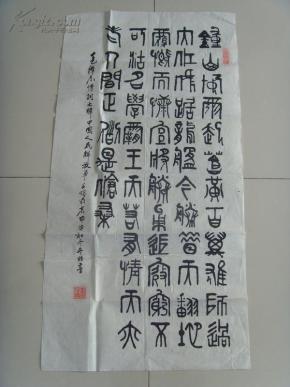 鍾山風雨起蒼黃百萬雄師過
大江虎踞龍盤今勝昔天翻地
覆慨而慷宜將勝勇追窮寇不
可沽名學霸王天若有情天亦
老人間正道是滄桑
毛澤東詩詞七律中國人民解放軍占領南京